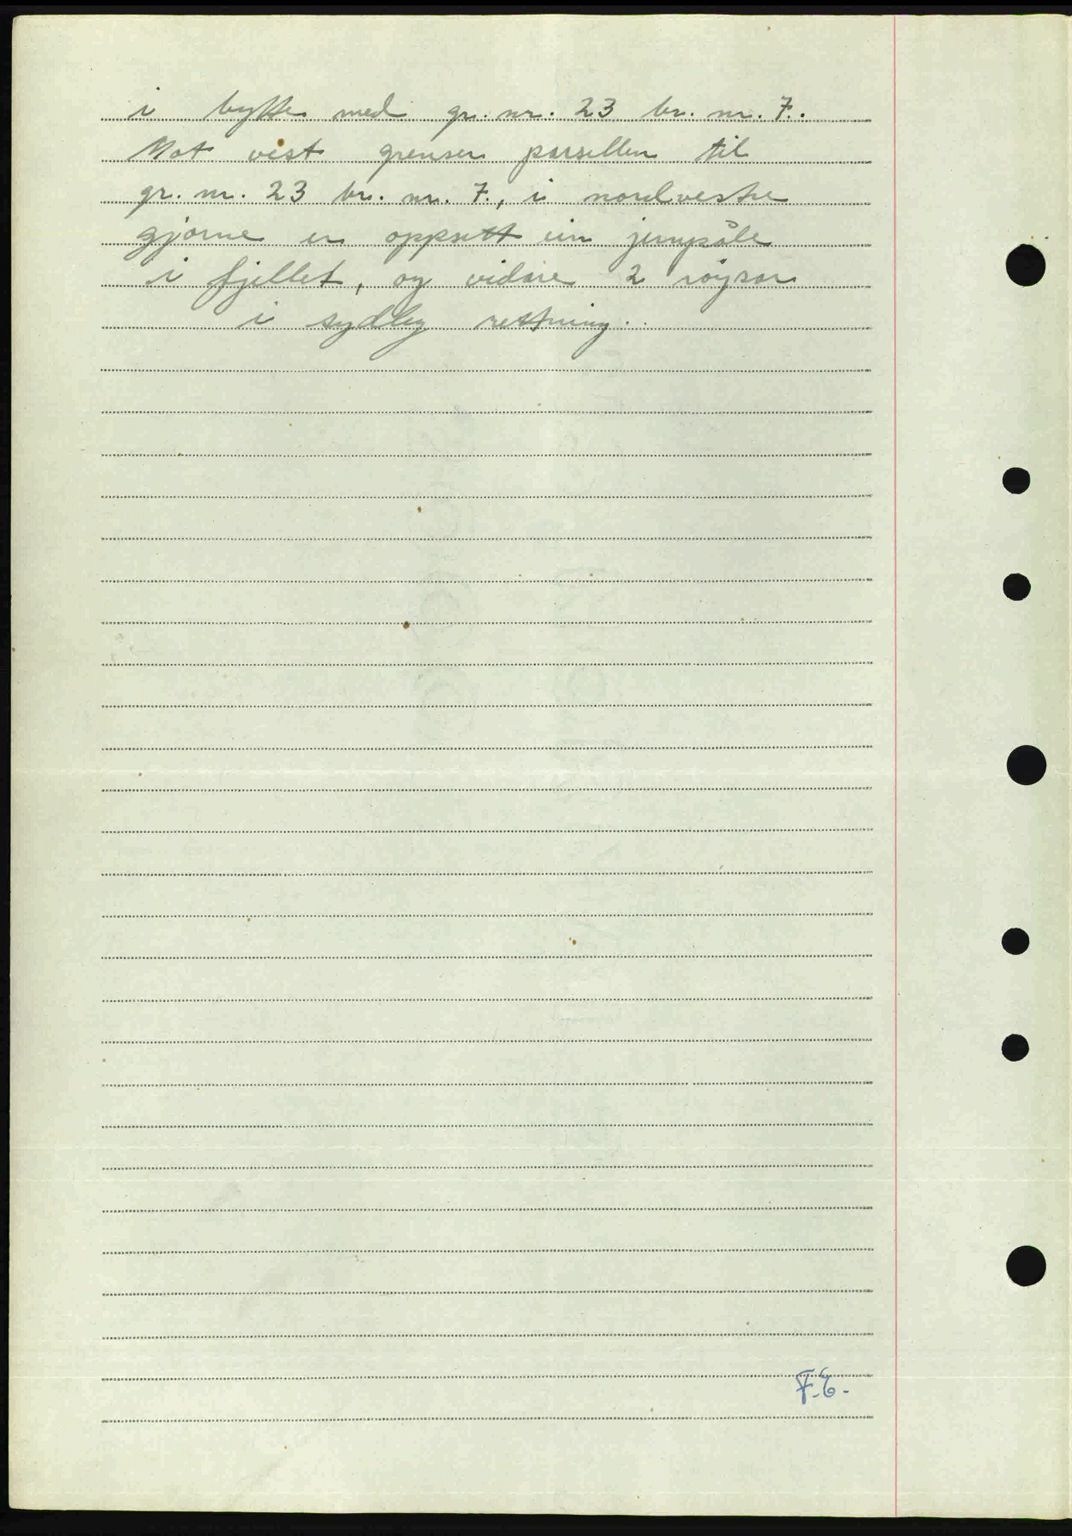 i bytte med gr. nr. 23 br. nr. 7.
Mot vest grenser parsellen til
gr. nr. 23 br. nr. 7., i nordvestre
gjørne er oppsett ein jernpåle
i fjellet, og vidare 2 røysar
i sydleg rettning.
F.E.